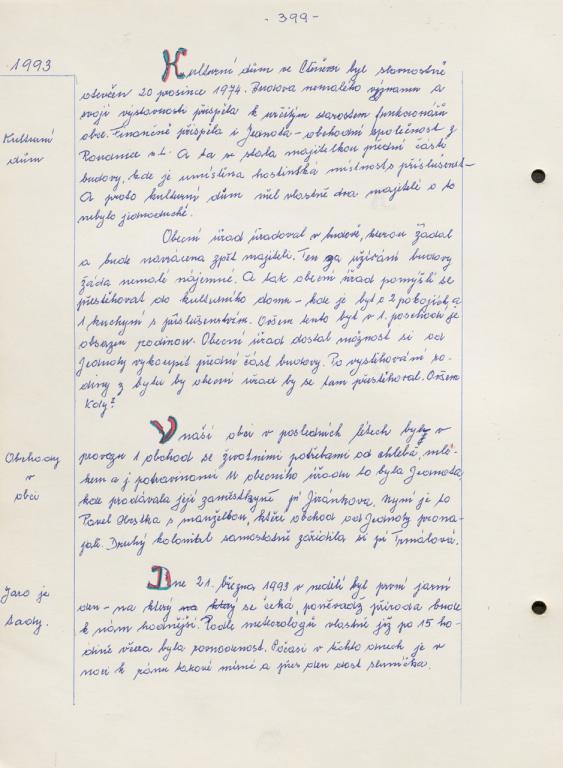 - 399 -
1993
Kulturní
dům
Kulturní dům ve Ctiněvsi byl slavnostně
otevřen 20 prosince 1974. Budova nemalého významu a
svojí výstavností přispěla k určitým starostem funkcionářů
obce. Finančně přispěla i Jednota - obchodní společnost z
A ta se stala majitelkou přední části
budovy, kde je umístěna hostinská místnost s příslušenst-
A proto kulturní dům měl vlastně dva majitele a to
nebylo jednoduché.
Obecní úřad úřadoval v budově, kterou žádal
a bude navrácena zpět majiteli. Ten za užívání budovy
žádá nemalé nájemné. A tak obecní úřad pomýšlí se
přestěhovat do kulturního domu - kde je byt o 2 pokojích, a
1 kuchyní s příslušenstvím. Ovšem tento byt v 1. poschodí je
obsazen rodinou. Obecní úřad dostal možnost si od
Jednoty vykoupit přední část budovy. Po vystěhování ro-
diny z bytu by obecní úřad by se tam přestěhoval. Ovšem
kdy?
Obchody
v
obci
V naší obci v posledních létech byly v
provozu 1 obchod se životními potřebami od chleba mlé-
kem a j potravinami U obecního úřadu to byla Jednota
kde prodávala její zaměstkyně pí Jiránkova. Nyní je to
Pavel Hrstka s manželkou, kteří obchod od Jednoty prona-
jali. Druhý koloniál samostatně zařídila si pí Trmálová.
Jaro je
tady.
Dne 21. března 1993 v neděli byl první jarní
den - na který na který se čeká, poněvadž příroda bude
k nám hodnější. Podle meteorologů vlastně již po 15 ho-
dině včera byla rovnodennost. Počasí v těchto dnech je v
noci k ránu takové mírné a přes den dost sluníčka.